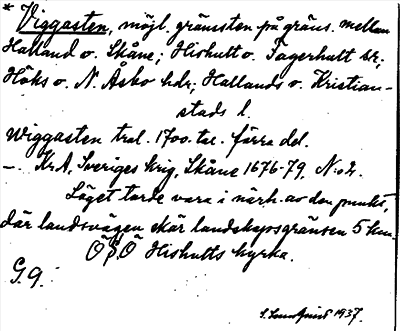 * Viggasten, möjl. gränssten på gräns. mellan
Halland o. Skåne; Hishult o. Fagerhult sk;
Höks o. N. Åsbo hdr; Hallands o. Kristian-
stads l.
Wiggasten tral. 1700-tal. förra del.
—. KrA, Sveriges krig, Skåne 1676-79, N:o
Läget torde vara i närh. av den punkt,
där landsvägen skär landskapsgränsen 5 km.
ÖSÖ Hishults kyrka.
G. 9.
1937.